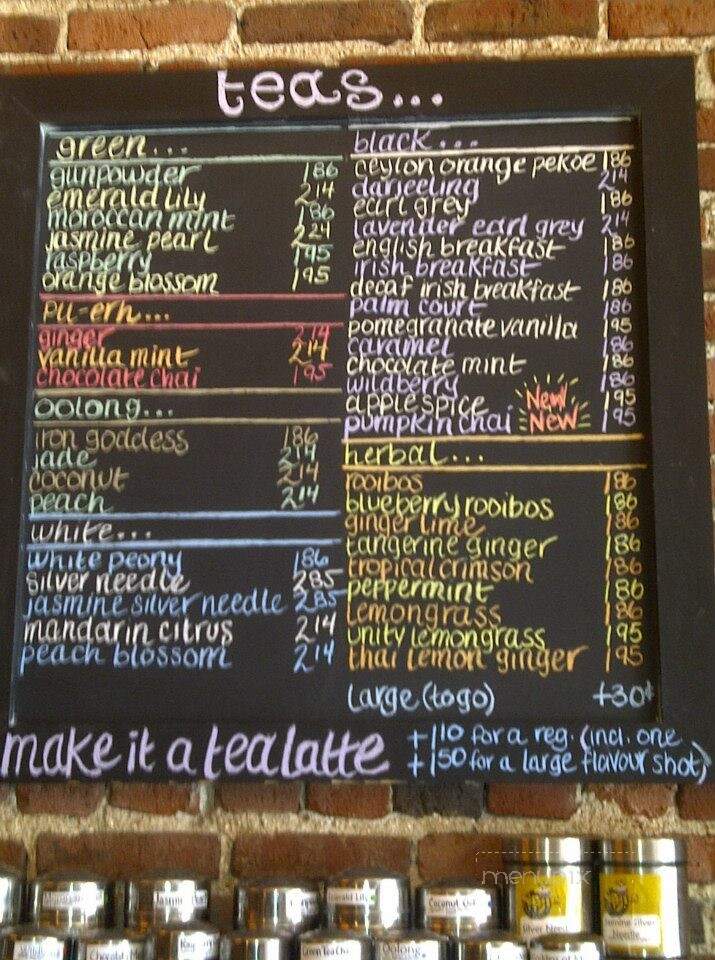 teas...
green...
gunpowder 186
emerald lily 214
moroccan mint 186
jasmine pearl 224
raspberry 195
orange blossom 195
pu-erh...
ginger 214
vanilla mint 214
chocolate chai 195
oolong...
iron goddess 186
jade 214
coconut 214
peach 214
white...
white peony 186
silver needle 285
jasmine silver needle 285
mandarin citrus 214
peach blossom 214
black...
ceylon orange pekoe 186
darjeeling 214
earl grey 186
lavender earl grey 214
english breakfast 186
irish breakfast 186
decaf irish breakfast 186
palm court 186
pomegranate vanilla 195
caramel 186
chocolate mint 186
wildberry 186
apple spice New 195
pumpkin chai New 195
herbal...
rooibos 186
blueberry rooibos 186
ginger lime 186
tangerine ginger 186
tropical crimson 186
peppermint 186
lemongrass 186
unity lemongrass 195
thai lemon ginger 195
large (to go) +30¢
make it a tea latte
+110 for a reg. (incl. one
+150 for a large flavour shot)
menupix
Emerald Lily
Coconut
Silver Need
Jasmine Silver
Needle
Oolong